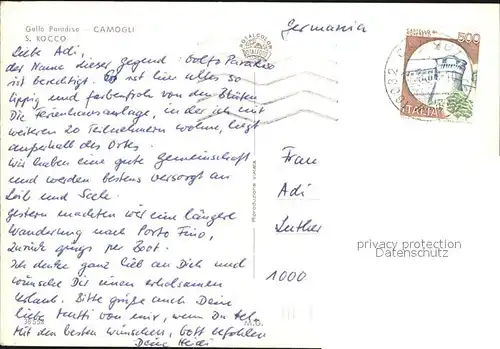 Golfo Paradiso - CAMOGLI
S. ROCCO
Germania
Liebe Adi,
der Name dieser Gegend: Golfo Paradiso
ist berechtigt. Es ist hier alles so
üppig und farbenfroh von den Blüten
Die Ferienhausanlage, in der ich mit
weiteren 20 Teilnehmern wohne, liegt
außerhalb des Ortes.
Wir haben eine gute Gemeinschaft
und werden bestens versorgt an
Leib und Seele.
Gestern machten wir eine längere
Wanderung nach Porto Fino,
zurück gings per Boot.
Ich denke ganz lieb an Dich und
wünsche Dir einen erholsamen
Urlaub. Bitte grüße auch Deine
liebe Mutti von mir, wenn Du tel.
Mit den besten Wünschen, Gott befohlen
Deine Heidi
M.G.
500
ITALIA
Frau
Adi
Luther
1000
privacy protection
Datenschutz